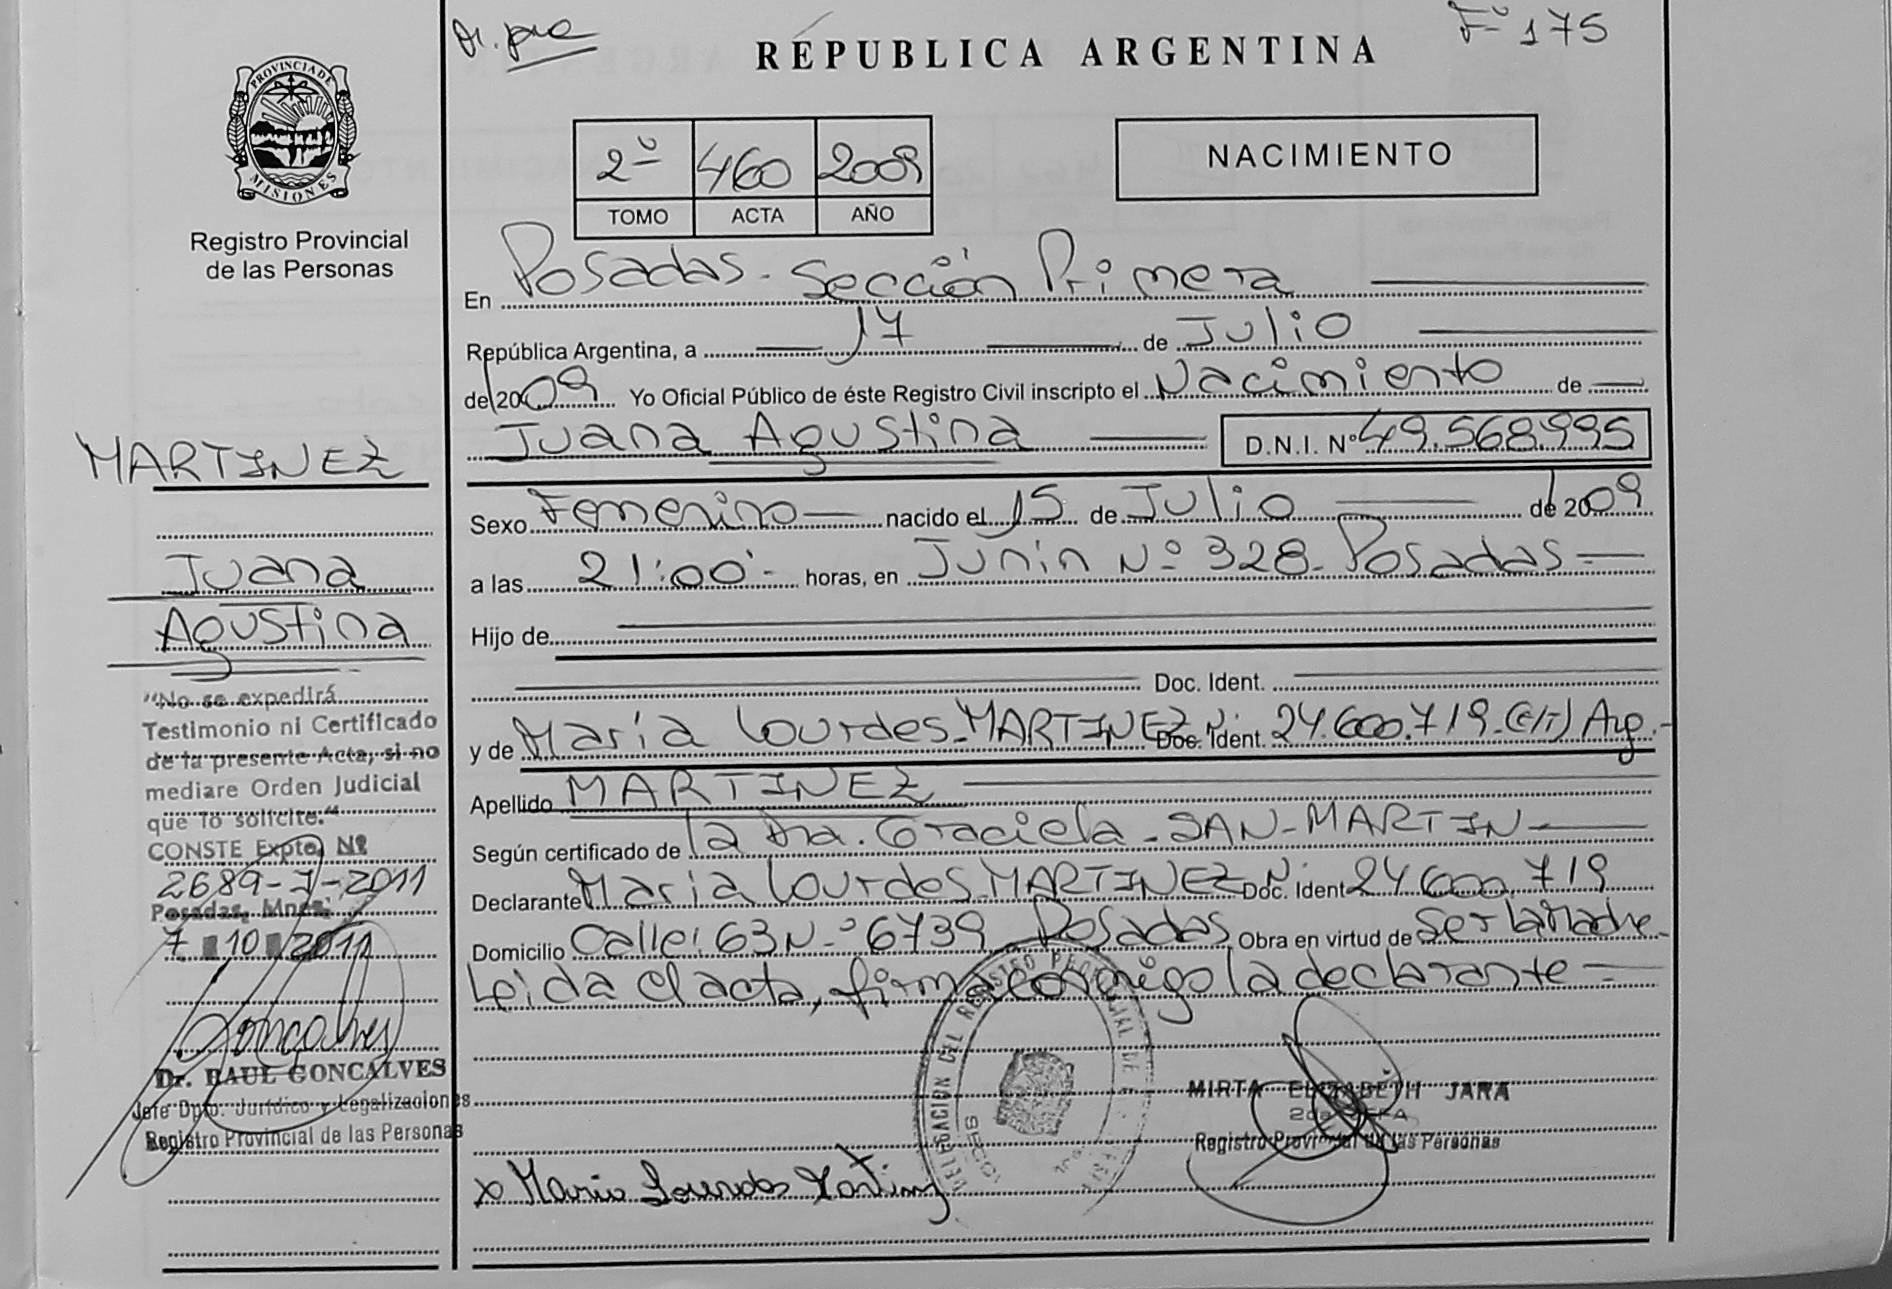 F° 175
REPUBLICA ARGENTINA
PROVINCIA DE
MISIONES
Registro Provincial
de las Personas
2º 460 2009
TOMO ACTA AÑO
NACIMIENTO
En Posadas - Sección Primera
República Argentina, a 17 de Julio
de 2009 Yo Oficial Público de éste Registro Civil inscripto el Nacimiento de
Juana Agustina D.N.I. Nº 49.568.995
Sexo Femenino nacido el 15 de Julio de 2009
a las 21:00 horas, en Junin Nº 328 - Posadas
Hijo de
Doc. Ident.
y de Maria Lourdes - MARTINEZ Doc. Ident. 24.600.719 - (C/I) Arg.-
Apellido MARTINEZ
Según certificado de la Dra. Graciela - SAN - MARTIN
Declarante Maria Lourdes - MARTINEZ Doc. Ident 24.600.719
Domicilio Calle: 63 N° 6739 Posadas Obra en virtud de ser la Madre -
Leida el acta, firma conmigo la declarante
MIRTA ELIZABETH JARA
2da JEFA
Registro Provincial de las Personas
x Maria Lourdes Martinez
MARTINEZ
Juana
Agustina
"No se expedirá
Testimonio ni Certificado
de la presente Acta, si no
mediare Orden Judicial
que lo solicite."
CONSTE Expte. Nº
2689-J-2011
Posadas, Mnes,
7 10 2011
Dr. RAUL GONCALVES
Jefe Dpto. Jurídico y Legalizaciones
Registro Provincial de las Personas